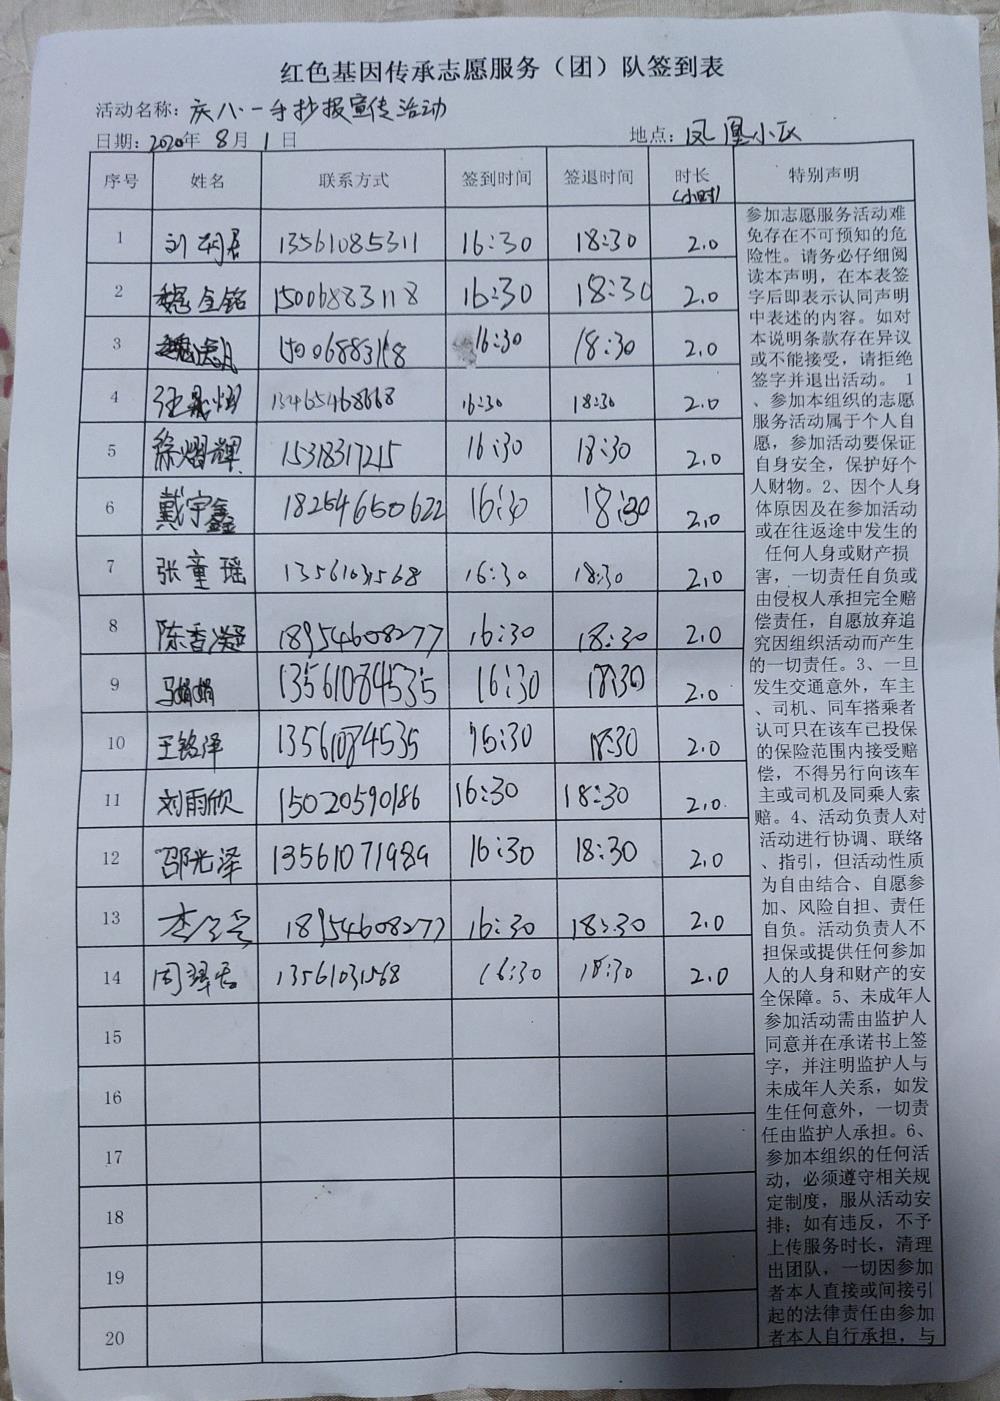 红色基因传承志愿服务（团）队签到表
活动名称：庆八一手抄报宣传活动
日期：2020年 8月 1日 地点：凤凰小区
序号 姓名 联系方式 签到时间 签退时间 时长（小时） 特别声明
1 刘 13561085311 16:30 18:30 2.0
2 魏金铭 15006883118 16:30 18:30 2.0
3 15006883118 16:30 18:30 2.0
4 13465468668 16:30 18:30 2.0
5 徐熠辉 15318317215 16:30 18:30 2.0
6 戴宇鑫 18254650622 16:30 18:30 2.0
7 张童瑶 13561031568 16:30 18:30 2.0
8 陈香凝 18954608277 16:30 18:30 2.0
9 马娟娟 13561084535 16:30 18:30 2.0
10 王铭泽 13561084535 16:30 18:30 2.0
11 刘雨欣 15020590186 16:30 18:30 2.0
12 邵光泽 13561071989 16:30 18:30 2.0
13 李 18954608277 16:30 18:30 2.0
14 周翠 13561031568 16:30 18:30 2.0
15
16
17
18
19
20
参加志愿服务活动难
免存在不可预知的危
险性。请务必仔细阅
读本声明，在本表签
字后即表示认同声明
中表述的内容。如对
本说明条款存在异议
或不能接受，请拒绝
签字并退出活动。 1
、参加本组织的志愿
服务活动属于个人自
愿，参加活动要保证
自身安全，保护好个
人财物。2、因个人身
体原因及在参加活动
或在往返途中发生的
任何人身或财产损
害，一切责任自负或
由侵权人承担完全赔
偿责任，自愿放弃追
究因组织活动而产生
的一切责任。3、一旦
发生交通意外，车主
、司机、同车搭乘者
认可只在该车已投保
的保险范围内接受赔
偿，不得另行向该车
主或司机及同乘人索
赔。4、活动负责人对
活动进行协调、联络
、指引，但活动性质
为自由结合、自愿参
加、风险自担、责任
自负。活动负责人不
担保或提供任何参加
人的人身和财产的安
全保障。5、未成年人
参加活动需由监护人
同意并在承诺书上签
字，并注明监护人与
未成年人关系，如发
生任何意外，一切责
任由监护人承担。6、
参加本组织的任何活
动，必须遵守相关规
定制度，服从活动安
排；如有违反，不予
上传服务时长，清理
出团队，一切因参加
者本人直接或间接引
起的法律责任由参加
者本人自行承担，与